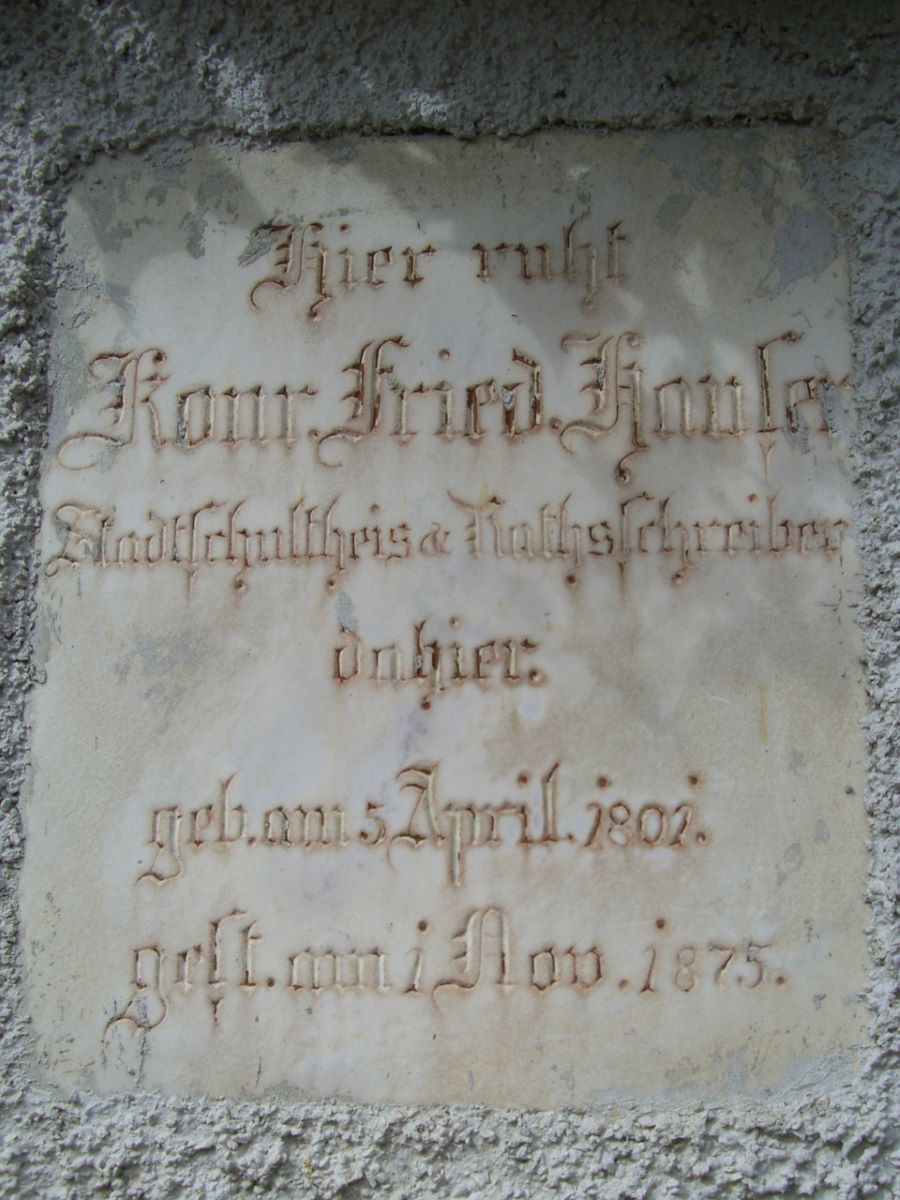 Hier ruht
Konr. Fried. Hauser
Stadtschultheis & Rathsschreiber
dahier.
geb. am 5 April. 1801.
gest. am 1 Nov. 1875.